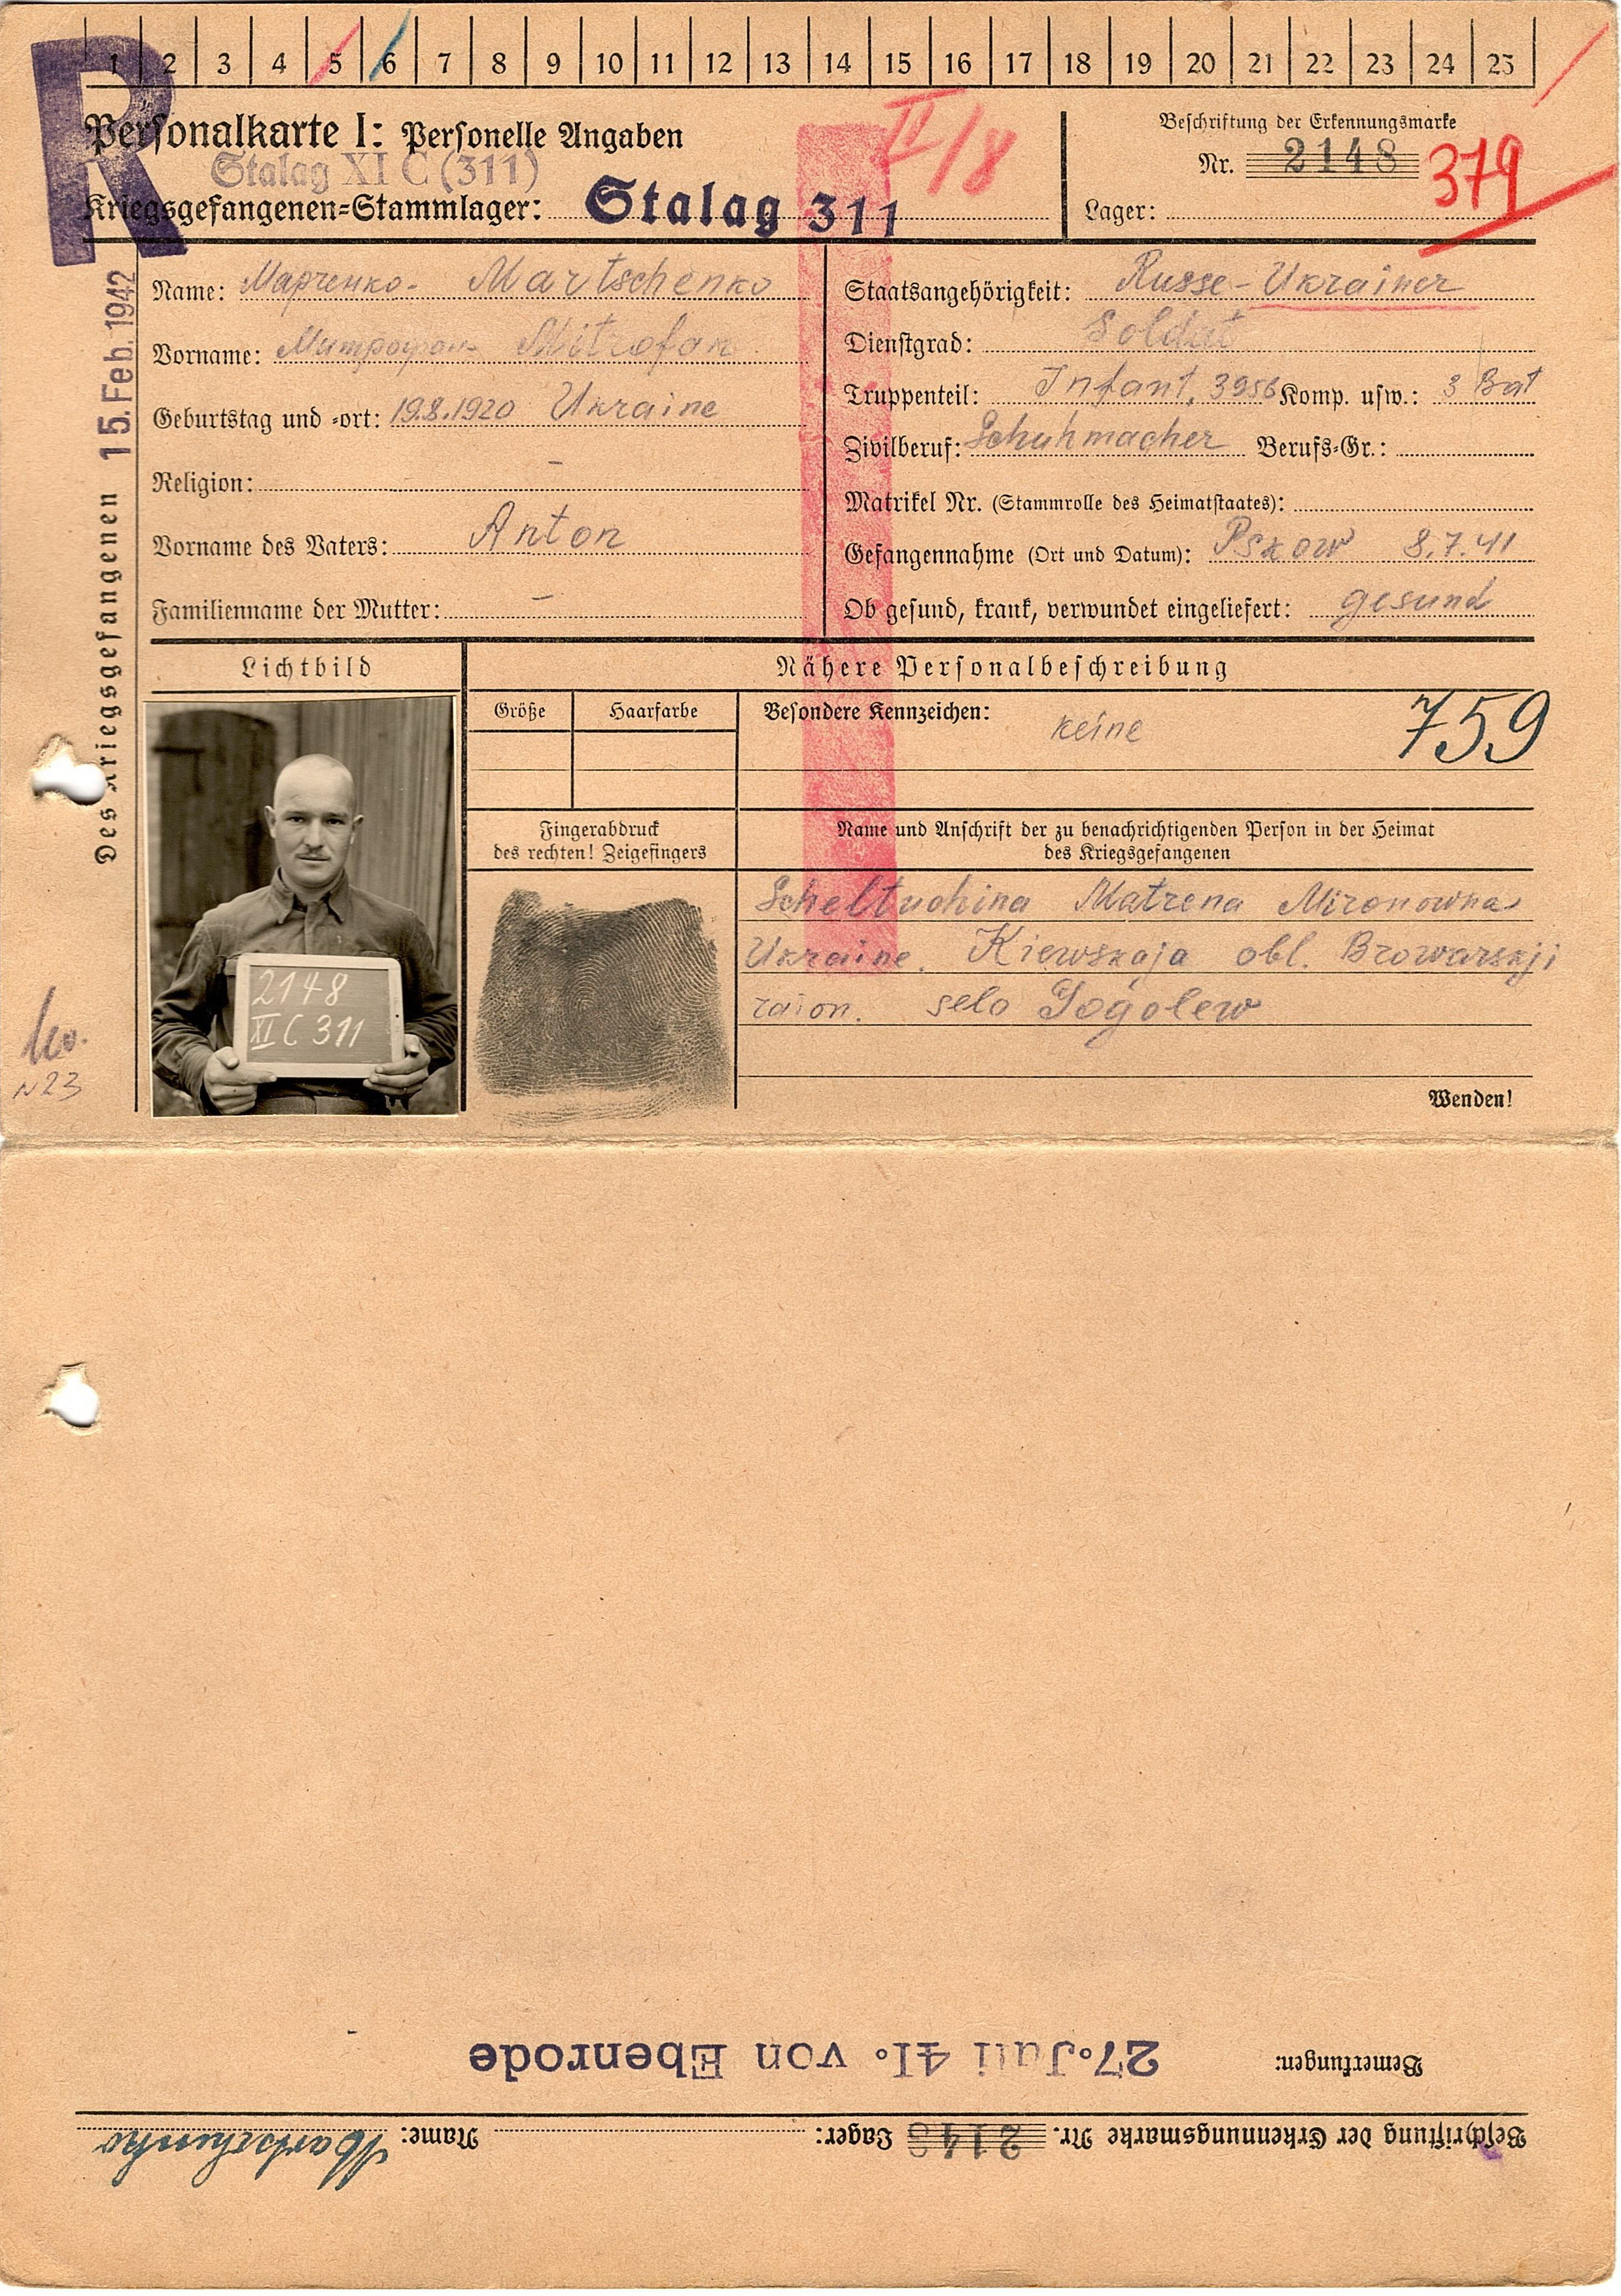 1 2 3 4 5 6 7 8 9 10 11 12 13 14 15 16 17 18 19 20 21 22 23 24 25
R
Personalkarte I: Personelle Angaben
II/8
Beschriftung der Erkennungsmarke
Stalag XI C (311)
Nr. 2148 379
Kriegsgefangenen=Stammlager: Stalag 311
Lager:
Des Kriegsgefangenen 15. Feb. 1942
Name: Марченко- Martschenko
Vorname: Митрофан Mitrofan
Geburtstag und =ort: 19.8.1920 Ukraine
Religion: –
Vorname des Vaters: Anton
Familienname der Mutter: –
Staatsangehörigkeit: Russe-Ukrainer
Dienstgrad: Soldat
Truppenteil: Infant. 3956 Komp. usw.: 3 Bat
Zivilberuf: Schuhmacher Berufs=Gr.:
Matrikel Nr. (Stammrolle des Heimatstaates):
Gefangennahme (Ort und Datum): Pskow 8.7.41
Ob gesund, krank, verwundet eingeliefert: gesund
Lichtbild
Nähere Personalbeschreibung
Größe Haarfarbe
Besondere Kennzeichen: keine
759
Fingerabdruck
des rechten! Zeigefingers
Name und Anschrift der zu benachrichtigenden Person in der Heimat
des Kriegsgefangenen
Scheltuchina Matrena Mironowna
Ukraine. Kiewskaja obl. Browarskji
raion. selo Gogolew
2148
XI C 311
N23
Wenden!
Beschriftung der Erkennungsmarke Nr. 2148 Lager: Name: Martschenko
Bemerkungen: 27.Juli 41. von Ebenrode